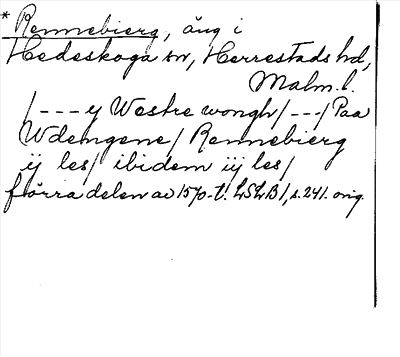 * Rennebierg, äng i
Hedeskoga sn, Herrestads hd,
Malm. l.
/---y Westre wongh/---/Paa
Wdemgene/ Rennebierg
ij les/ ibidem iij les/
förra delen av 1570-t! LSLB1, s. 241. orig.